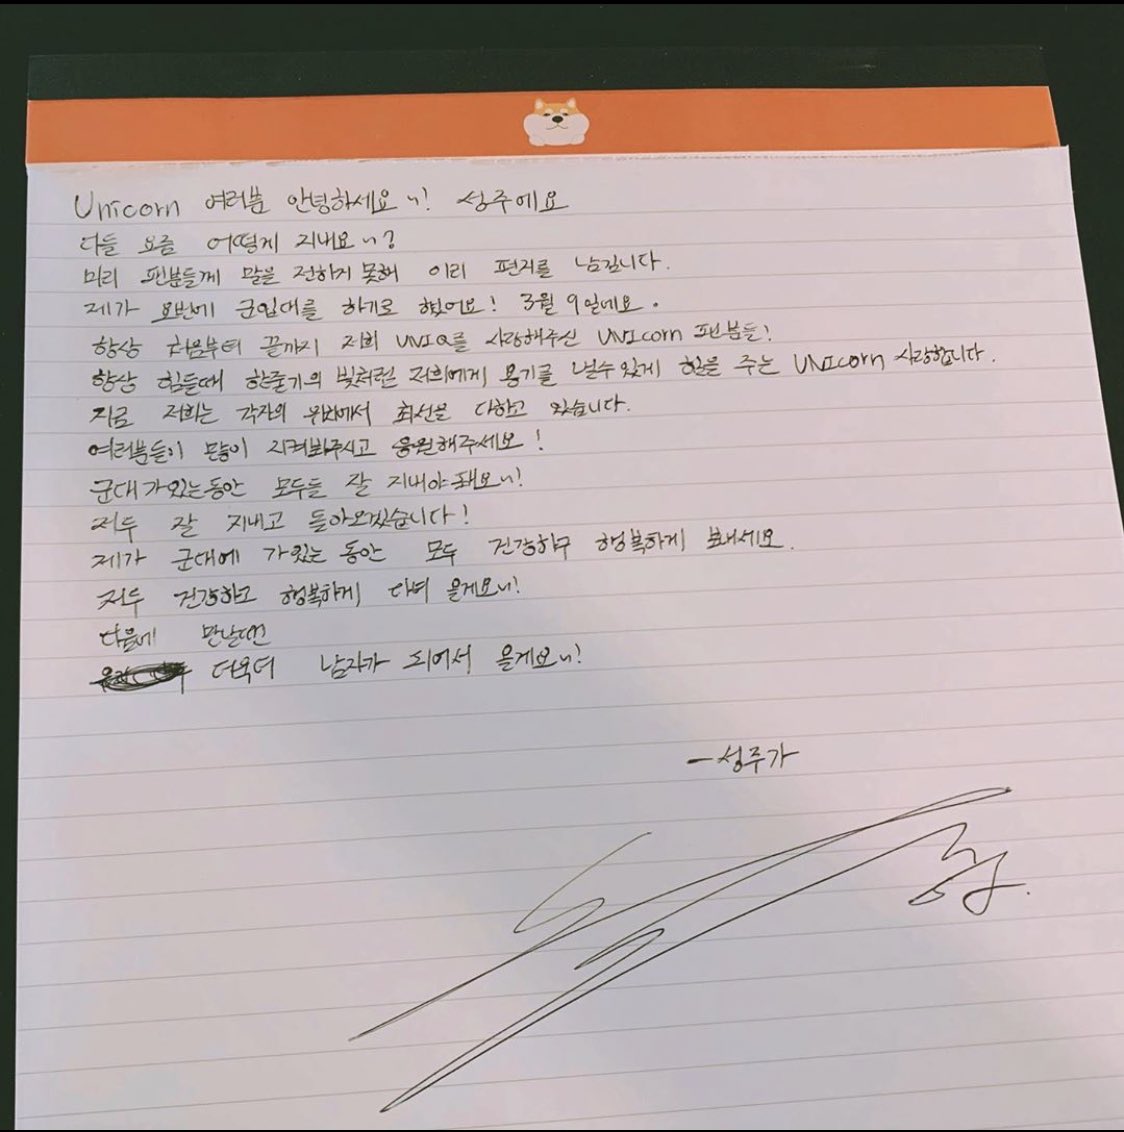 Unicorn 여러분 안녕하세요~! 성주에요
다들 요즘 어떻게 지내요~?
미리 팬분들께 말을 전하지 못해 이리 편지를 남깁니다.
제가 요번에 군입대를 하기로 했어요! 3월 9일네요.
항상 처음부터 끝까지 저희 UNIQ를 사랑해주신 UNIcorn 팬분들!
항상 힘들때 한줄기의 빛처럼 저희에게 용기를 낼수있게 힘을 주는 UNIcorn 사랑합니다.
지금 저희는 각자의 위치에서 최선을 다하고 있습니다.
여러분들이 많이 지켜봐주시고 응원해주세요!
군대가있는동안 모두들 잘 지내야돼요~!
저두 잘 지내고 돌아오겠습니다!
제가 군대에 가있는 동안 모두 건강하구 행복하게 보내세요.
저두 건강하고 행복하게 다녀 올게요~!
다음에 만날땐
더욱더 남자가 되어서 올게요~!
-성주가